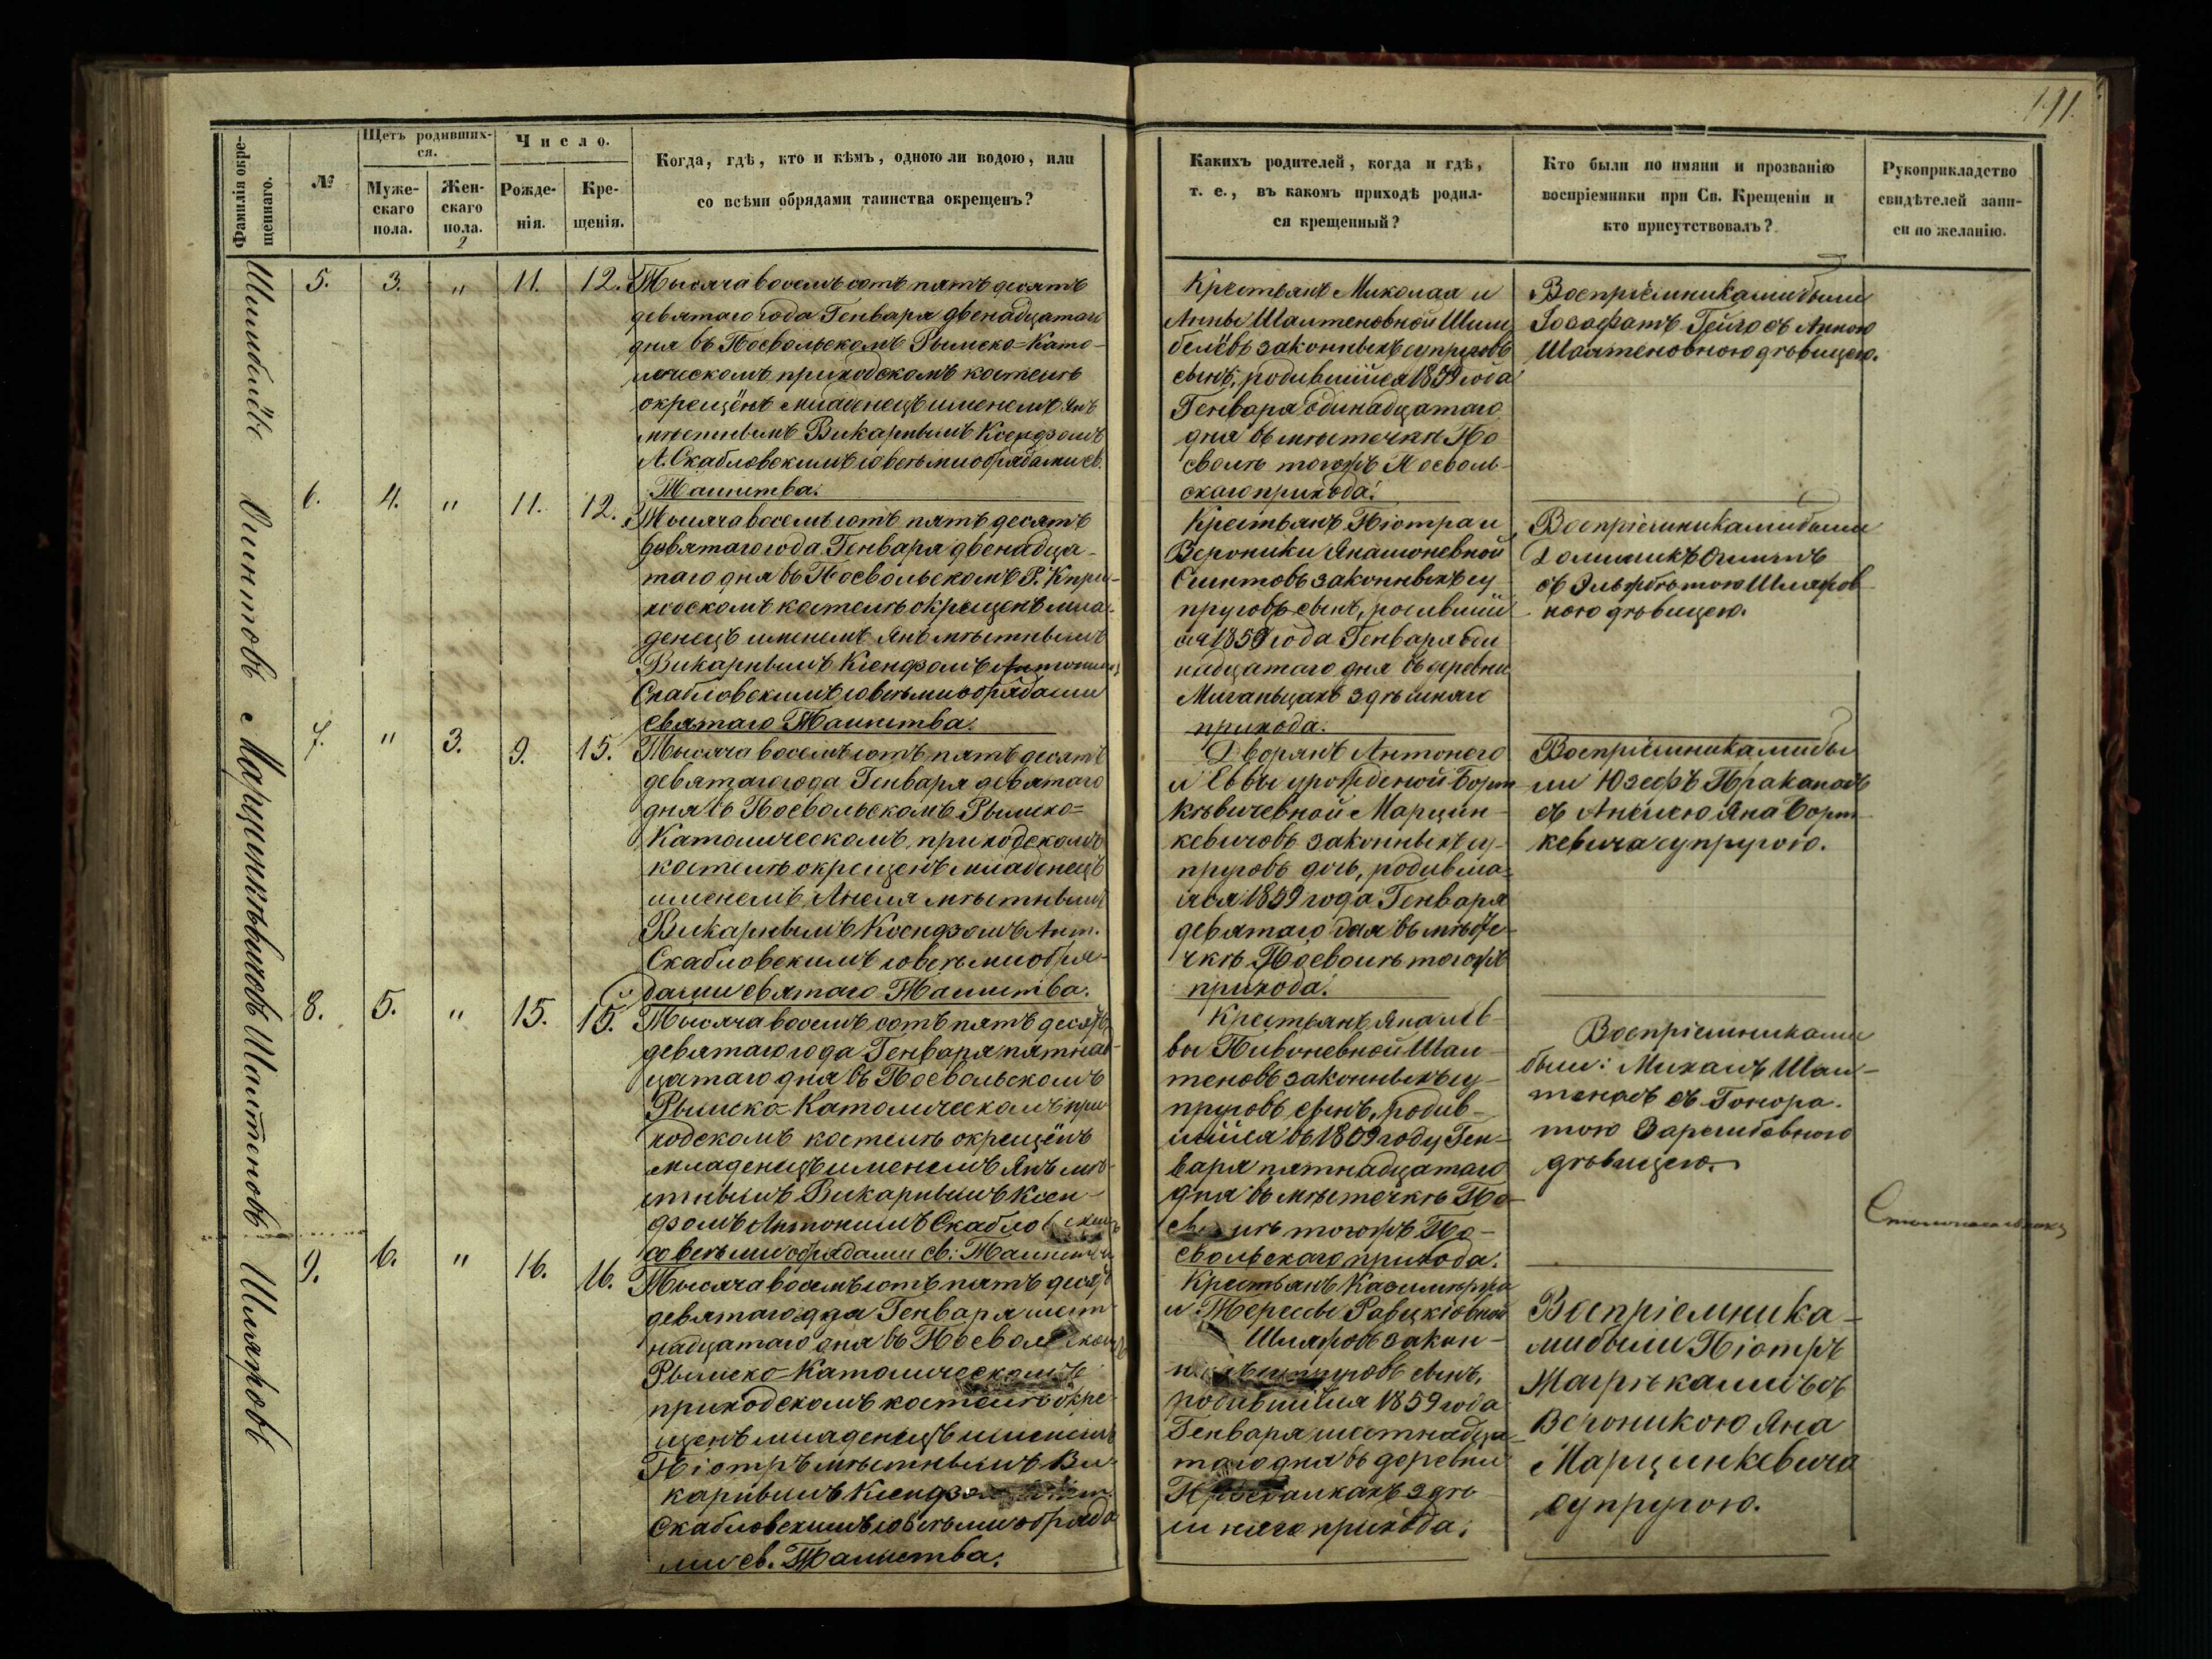 191.
Фамилія окре-
щеннаго.
№
Щетъ родивших-
ся.
Муже-
скаго
пола.
Жен-
скаго
пола.
2
Число.
Рожде-
нія.
Кре-
щенія.
Когда, гдѣ, кто и кѣмъ, одною ли водою, или
со всѣми обрядами таинства окрещенъ?
Какихъ родителей, когда и гдѣ,
т. е., въ какомъ приходѣ родил-
ся крещенный?
Кто были по имяни и прозванію
воспріемники при Св. Крещеніи и
кто присутствовалъ?
Рукоприкладство
свидѣтелей запи-
си по желанію.
5. 3. " 11. 12.
Тысяча восемъ сотъ пятъ десятъ
девятаго года Генваря двенадцатаго
дня въ Посвольскомъ Рымско-Като-
лическомъ приходскомъ костелѣ
окрещёнъ младенецъ именемъ Янъ
мѣстнымъ Викарнымъ Ксендзомъ
А. Скабловскимъ со всѣми обрядами св.
Таинства.
Крестьянъ Миколая и
Анны Шалтеновной Шим
белёвъ законныхъ супруговъ
сынъ, родившійся 1859 года
Генваря одинадцатаго
дня въ мѣстечкѣ По
сволѣ тогожъ Посволь-
скаго прихода.
Воспріемниками были
Іосафатъ Гейго съ Анною
Шалтеновною дѣвицею.
6. 4. " 11. 12.
Тысяча восемъ сотъ пятъ десятъ
девятаго года Генваря двенадца-
таго дня въ Посвольскомъ Р. К при-
ходскомъ костелѣ окрещенъ мла-
денецъ именемъ Янъ мѣстнымъ
Викарнымъ Ксендзомъ Антонимъ
Скабловскимъ со всѣми обрядами
святаго Таинства.
Крестьянъ Піотра и
Вероники
законныхъ су-
пруговъ сынъ, родившій
ся 1859 года Генваря оди
надцатаго дня въ деревни
здѣшняго
прихода.
Воспріемниками были
Доминикъ
съ Эльжбѣтою Шляжов
ною дѣвицею.
7. " 3. 9. 15.
Тысяча восемъ сотъ пятъ десятъ
девятаго года Генваря девятаго
дня въ Посвольскомъ Рымско-
Католическомъ приходскомъ
костелѣ окрещенъ младенецъ
именемъ Анеля мѣстнымъ
Викарнымъ Ксендзомъ Ант.
Скабловскимъ со всѣми обря-
дами святаго Таинства.
Дворянъ Антонего
и Еввы урожденой Борт
кѣвичевной Марцин-
кевичовъ законныхъ су-
пруговъ дочь, родивша-
яся 1859 года Генваря
девятаго дня въ мѣсте-
чкѣ Посволѣ тогожъ
прихода.
Воспріемниками бы
ли Юзефъ
съ Анелею Яна Борт-
кевича супругою.
8. 5. " 15. 15.
Тысяча восемъ сотъ пятъ десятъ
девятаго года Генваря пятнад-
цатаго дня въ Посвольскомъ
Рымско-Католическомъ при
ходскомъ костелѣ окрещёнъ
младенецъ именемъ Янъ мѣ-
стнымъ Викарнымъ Ксен-
дзомъ Антонимъ Скабловскимъ
со всѣми обрядами св. Таинства
Крестьянъ Яна и Ев-
вы Пивоневной Шал-
теновъ законныхъ су-
пруговъ сынъ, родив-
шійся въ 1859 году Ген-
варя пятнадцатаго
дня въ мѣстечкѣ По-
сволѣ тогожъ По-
свольскаго прихода.
Воспріемниками
были: Михалъ Шал-
тенасъ съ Гонора-
тою
дѣвицею.
9. 6. " 16. 16.
Тысяча восемъ сотъ пятъ десятъ
девятаго года Генваря шест-
надцатаго дня въ Посвольскомъ
Рымско-Католическомъ
приходскомъ костелѣ окре-
щенъ младенецъ именемъ
Піотръ мѣстнымъ Ви-
карнымъ Ксендзомъ
Скабловскимъ со всѣми обряда
ми св. Таинства.
Крестьянъ Казимержа
и Терессы
Шляжовъ закон-
супруговъ сынъ,
родившійся 1859 года
Генваря шестнадца-
таго дня въ деревни
здѣ
шняго прихода.
Воспріемника-
ми были Піотръ
съ
Вероникою Яна
Марцинкевича
супругою.
Шимбелёвъ
Марцинкѣвичовъ
Шалтеновъ
Шляжовъ